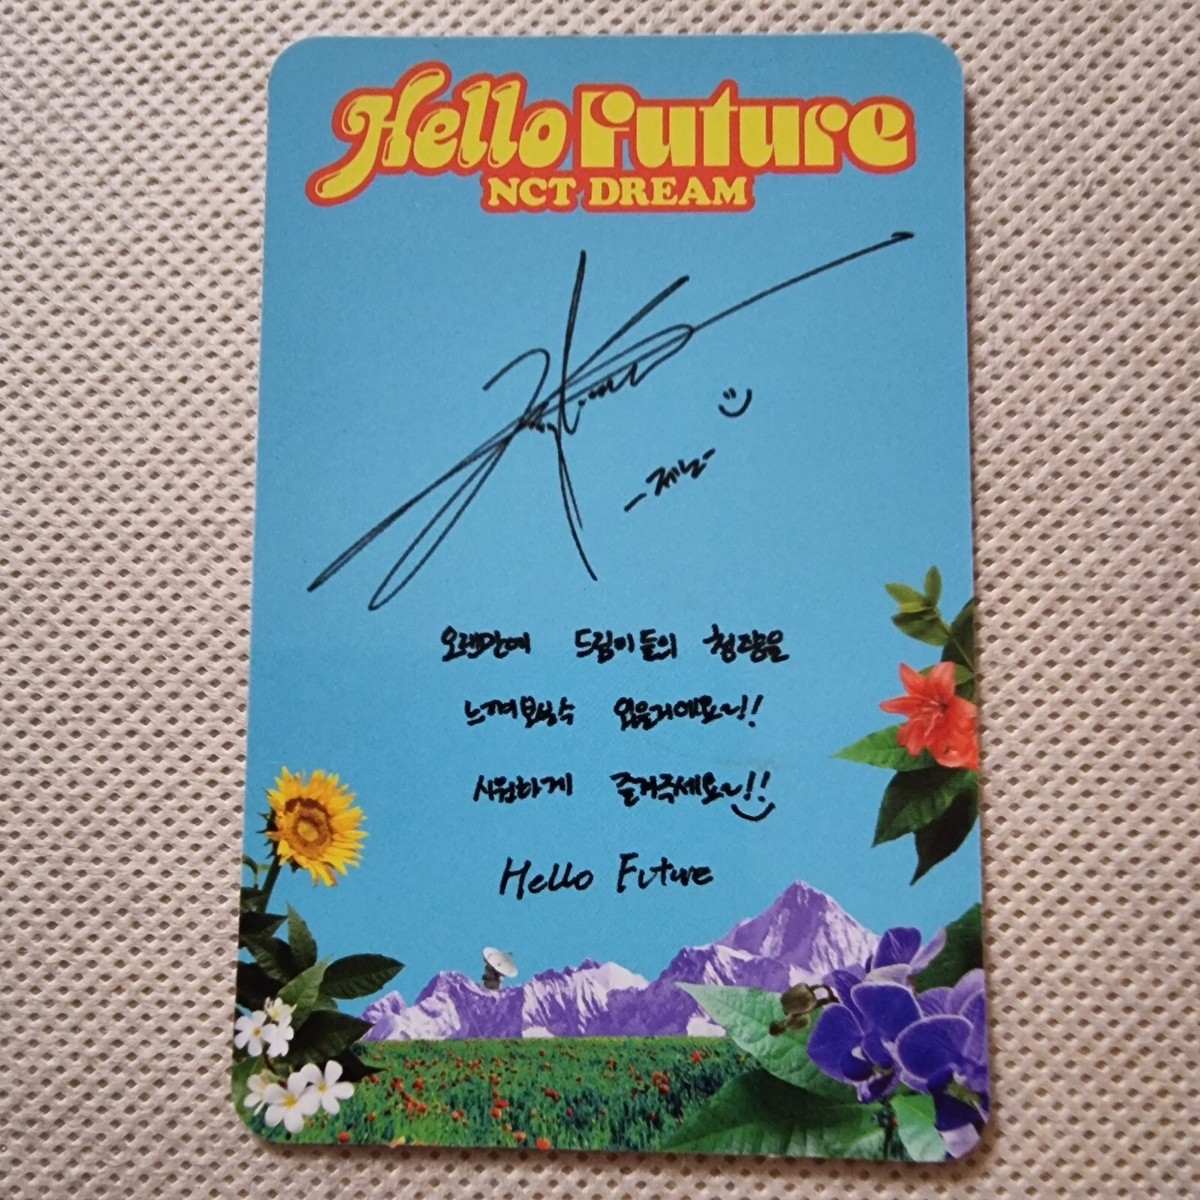 Hello Future
NCT DREAM
-제노-
오랜만에 드림이들의 청량을
느껴보실수 있을거에요~!
시원하게 즐겨주세요~!!
Hello Future